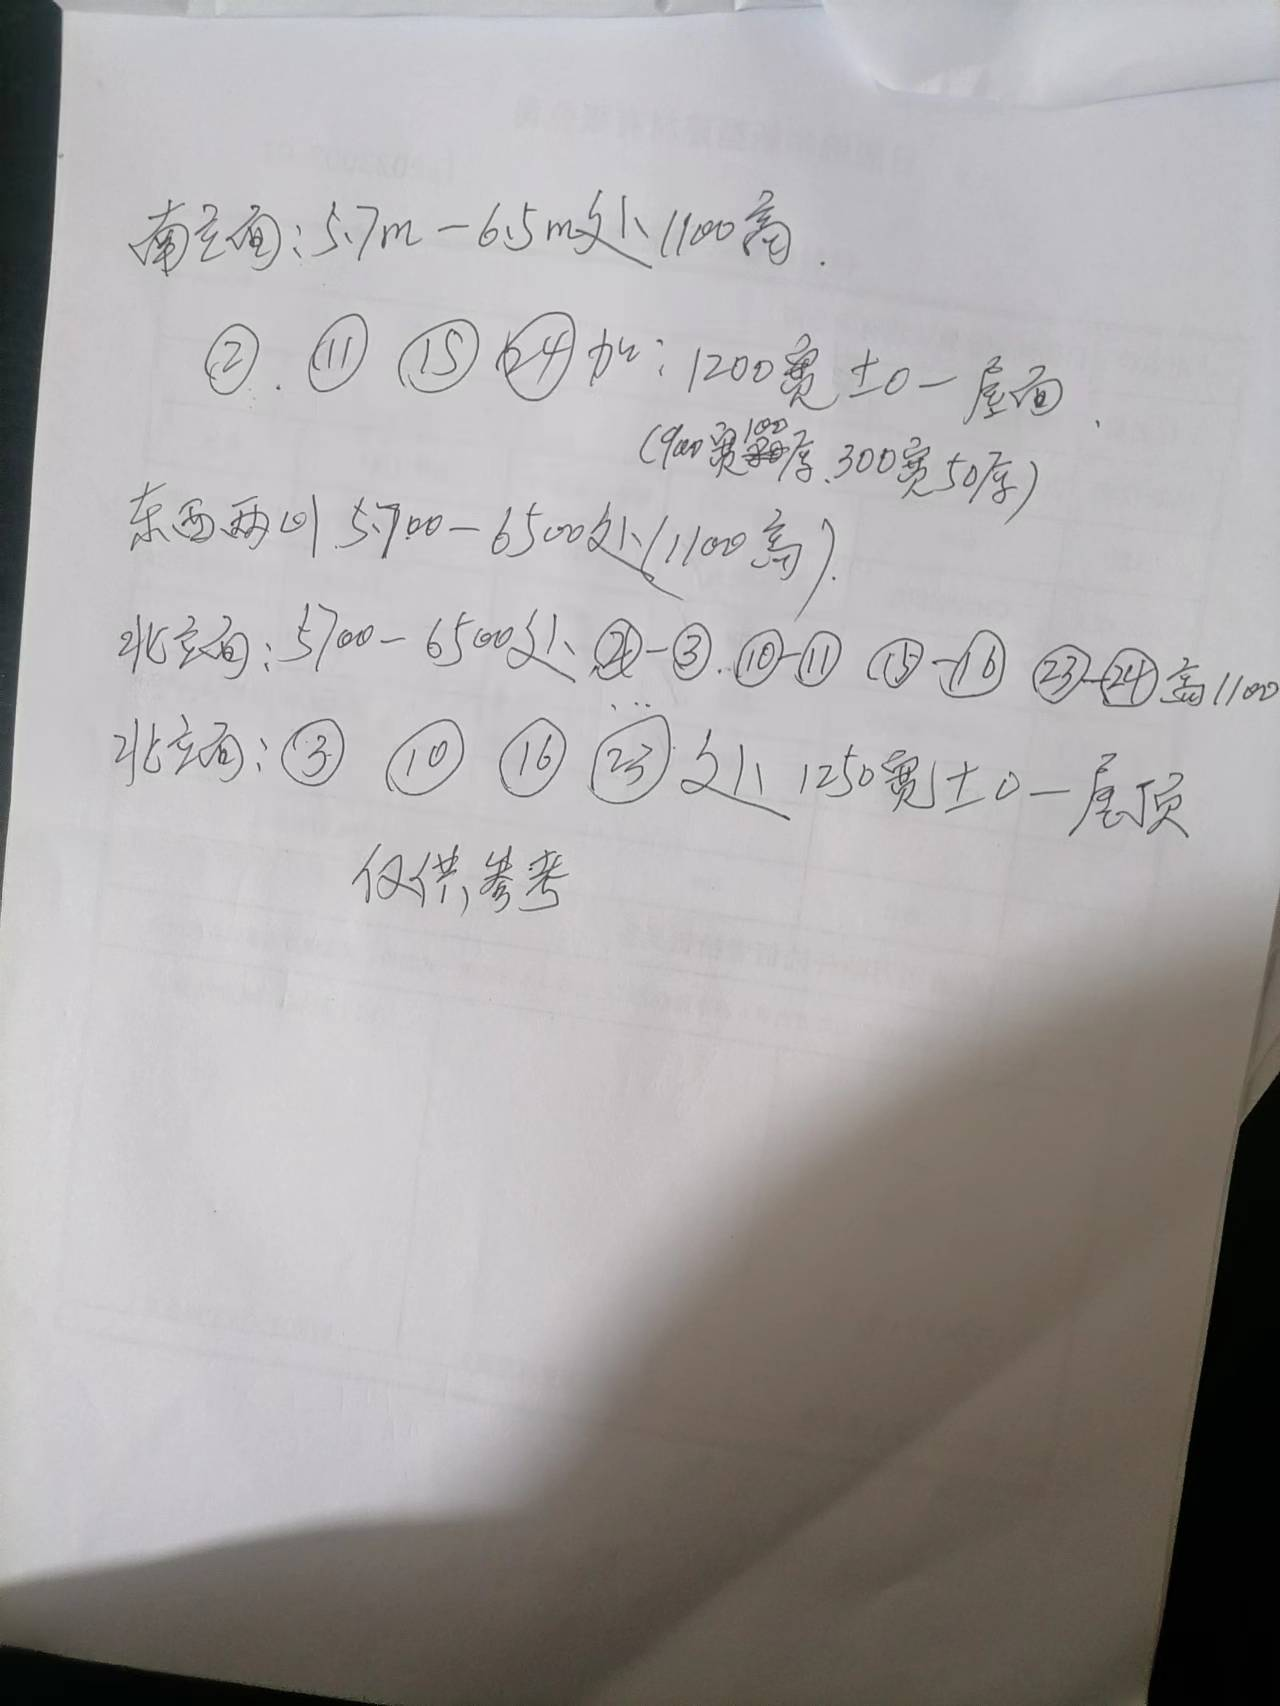 南立面:5.7m-6.5m处1100高.
②.⑪ ⑮ ㉔加:1200宽±0-屋面.
(900宽100厚、300宽50厚)
东西两山5.700-6500处(1100高).
北立面:5700-6500处 ②-③.⑩-⑪ ⑮-⑯ ㉓-㉔高1100
北立面:③ ⑩ ⑯ ㉓处1250宽±0-屋顶
仅供参考